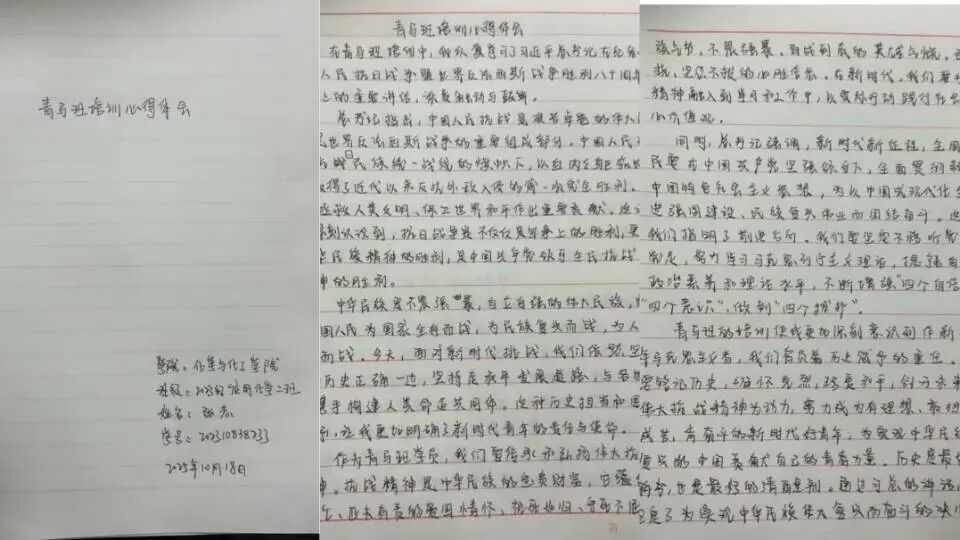 青马班培训心得体会
学院：化学与化工学院
班级：2023级应用化学二班
姓名：
学号：202310838233
2025年10月18日
青马班培训心得体会
在青马班培训中，我认真学习了习近平总书记在纪念
人民抗日战争暨世界反法西斯战争胜利八十周年
上的重要讲话，深受触动与鼓舞。
总书记指出，中国人民抗战是艰苦卓绝的伟大
是世界反法西斯战争的重要组成部分。中国人民
抗战民族统一战线的旗帜下，以血肉之躯
取得了近代以来反抗外敌入侵的第一次完全胜利，
拯救人类文明、保卫世界和平作出重要贡献。这
深刻认识到，抗日战争是不仅仅是军事上的胜利，更
是民族精神的胜利，是中国共产党领导全民族抗战
神的胜利。
中华民族是不畏强暴，自立自强的伟大民族，
国人民为国家生存而战，为民族复兴而战，为人
而战。今天，面对新时代挑战，我们依然
历史正确一边，坚持走和平发展道路，与各
携手构建人类命运共同体。这种历史担当和
，让我更加明确了新时代青年的责任与使命。
作为青马班学员，我们要传承弘扬伟大抗
神。抗战精神是中华民族的宝贵财富，它蕴
亡、匹夫有责的爱国情怀，视死如归、宁死不屈
族气节，不畏强暴、血战到底的英雄气概，
挠、坚信不疑的必胜信念。在新时代，我们要
精神融入到学习和工作中，以实际行动践行社会
心价值观。
同时，总书记强调，新时代新征程，全国
民要在中国共产党坚强领导下，全面贯彻
中国特色社会主义思想，为以中国式现代化全
进强国建设、民族复兴伟业而团结奋斗。这
我们指明了前进方向。我们要坚定不移听党
党走，努力学习马克思列宁主义理论，提高自
政治素养和理论水平，不断增强“四个自信
“四个意识”，做到“四个维护”。
青马班的培训使我更加深刻意识到作新
年马克思主义者，我们肩负着历史赋予的重任。
要铭记历史，缅怀先烈，珍爱和平，创
伟大抗战精神为动力，努力成为有理想、敢担
成苦、肯奋斗的新时代好青年，为实现中华民族
复兴的中国梦贡献自己的青春力量。历史是最
科书，也是最好的清醒剂。通过
坚定了为实现中华民族伟大复兴而奋斗的决心